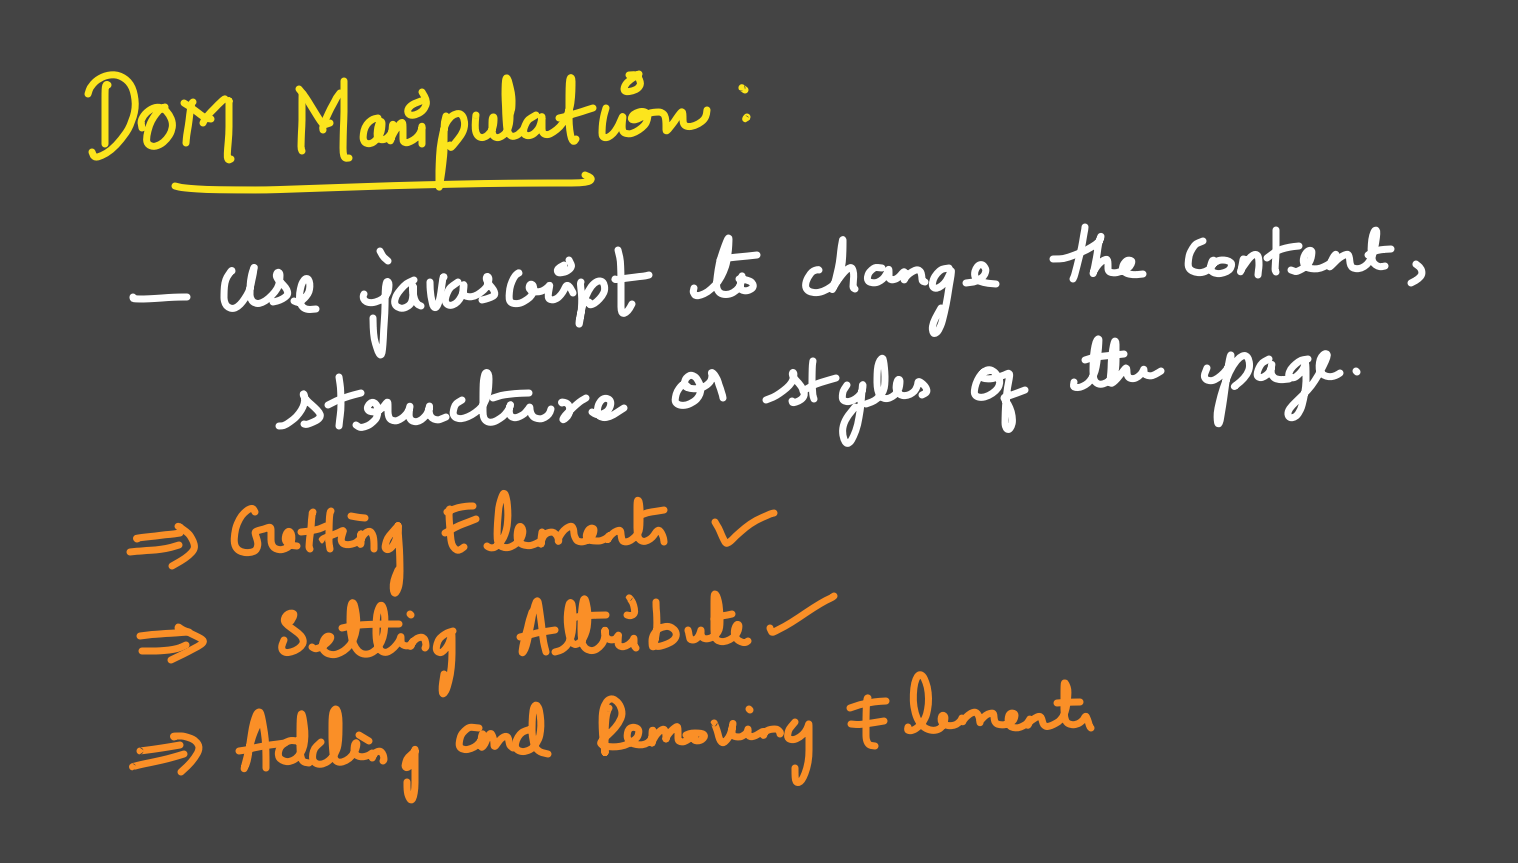 DOM Manipulation:
– Use javascript to change the content,
structure or styles of the page.
⇒ Getting Elements ✓
⇒ Setting Attribute ✓
⇒ Adding and Removing Elements